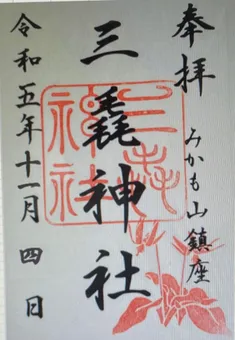 奉拝
みかも山鎮座
三毳神社
三毳
神社
令和五年十一月四日